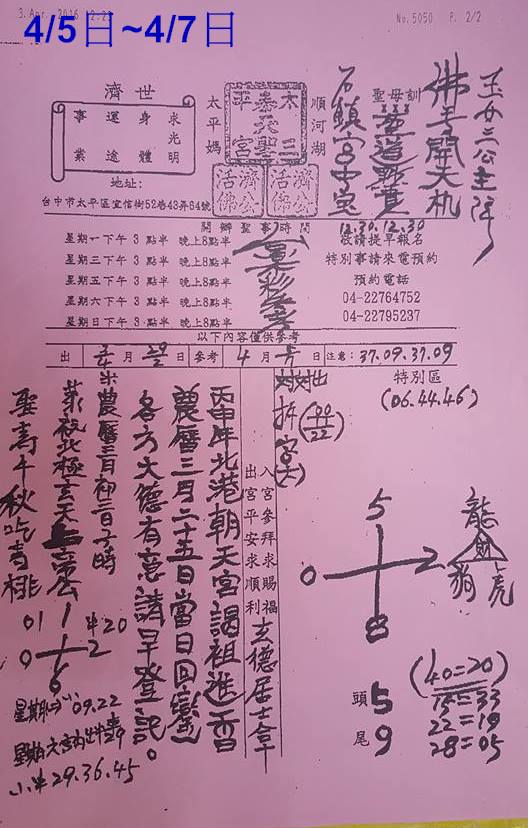 3. Apr. 2016 12:23
No. 5050 P. 2/2
4/5日~4/7日
玉女三公主降
佛手開天机
聖母訓
石鎮宮中宝
12.30.12.30
濟世
求光明
身體
運途
事業
太平媽
順河湖
太三
泰天聖
平宮
濟公活佛
濟公活佛
地址:
台中市太平區宜信街52巷48弄64號
開辦聖事時間
星期一下午 3 點半 晚上8點半
星期三下午 3 點半 晚上8點半
星期五下午 3 點半 晚上8點半
星期六下午 3 點半 晚上8點半
星期日下午 3 點半 晚上8點半
敬請提早報名
特別事請來電預約
預約電話
04-22764752
04-22795237
以下內容僅供參考
出 月 日 參考 4 月 日 注意: 37.09.37.09
特別區
(06.44.46)
拆字
入宮參拜求賜福
出宮平安求順利
玄德居士拿
丙申年北港朝天宮謁祖進香
農曆三月二十五日當日回鑾
各方大德有意請早登記。
農曆三月初三日子時
恭祝北極玄天上帝公
聖壽千秋吃壽桃
5
0
2
8
龍
財
豬
虎
01
1
串20
0
2
6
09.22
29.36.45
(40=20)
15=33
22=19
28=05
頭 5
尾 9